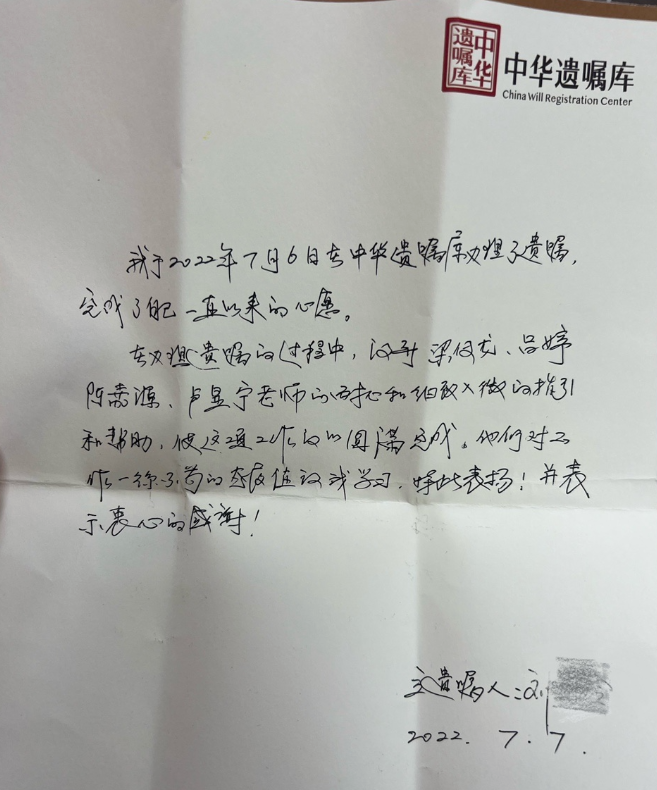 中华遗嘱库
中华遗嘱库
China Will Registration Center
我于2022年7月6日在中华遗嘱库办理了遗嘱，
完成了自己一直以来的心愿。
在办理遗嘱的过程中，得到梁俊龙、吕婷
陈嘉源、卢昱宁老师的耐心和细致入微的指引
和帮助，使这项工作得以圆满完成。他们对工
作一丝不苟的态度值议我学习，特此表扬！并表
示衷心的感谢！
立遗嘱人：刘
2022. 7. 7.